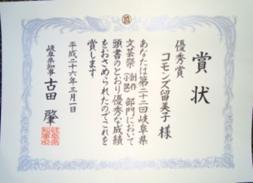 賞状
優秀賞
コモンズ留美子 様
あなたは第二十二回岐阜県
文芸祭 部門において
頭書のとおり優秀な成績
をおさめられたのでこれを
賞します
平成二十六年三月一日
岐阜県知事
古田 肇